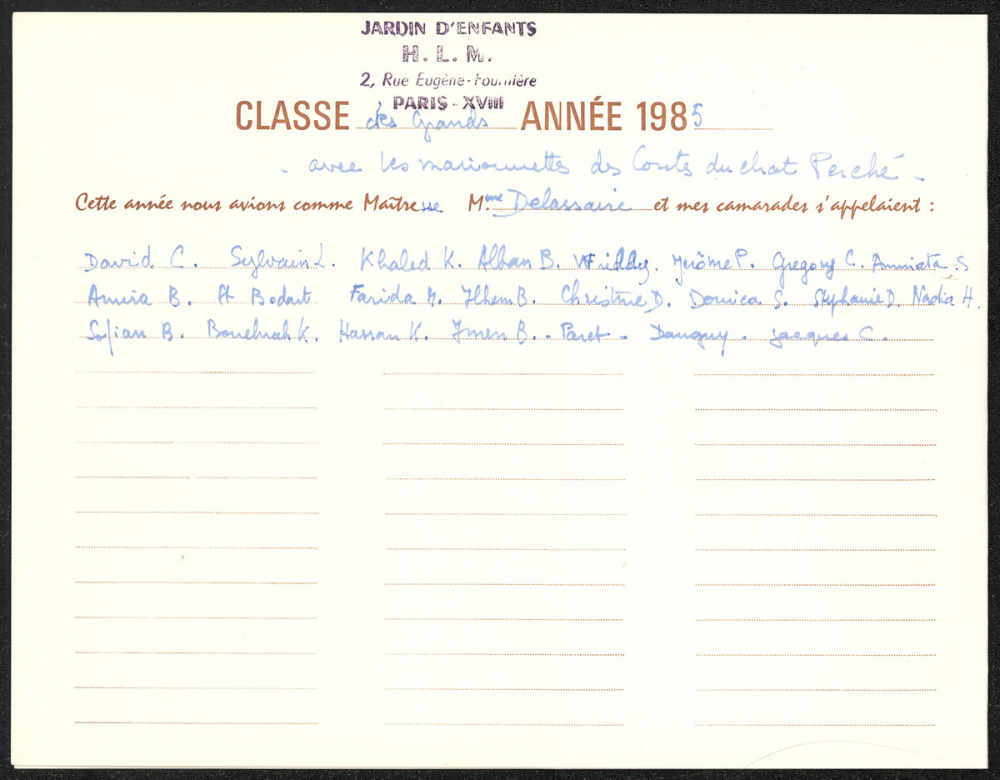 JARDIN D'ENFANTS
H. L. M.
2, Rue Eugène-Fournière
PARIS - XVIII
CLASSE des Grands ANNÉE 1985
- avec les marionnettes des Contes du chat Perché -
Cette année nous avions comme Maîtresse Mme Delassaire et mes camarades s'appelaient :
David C. Sylvain L. Khaled K. Alban B. Williddy. Jérôme P. Gregory C. Aminata S
Amira B. Bodart Farida M. Ilhem B. Christine D. Donica S. Stéphanie D. Nadia H.
Sofian B. K. Hassan K. Imen B. - Paret - Danguy - Jacques C.